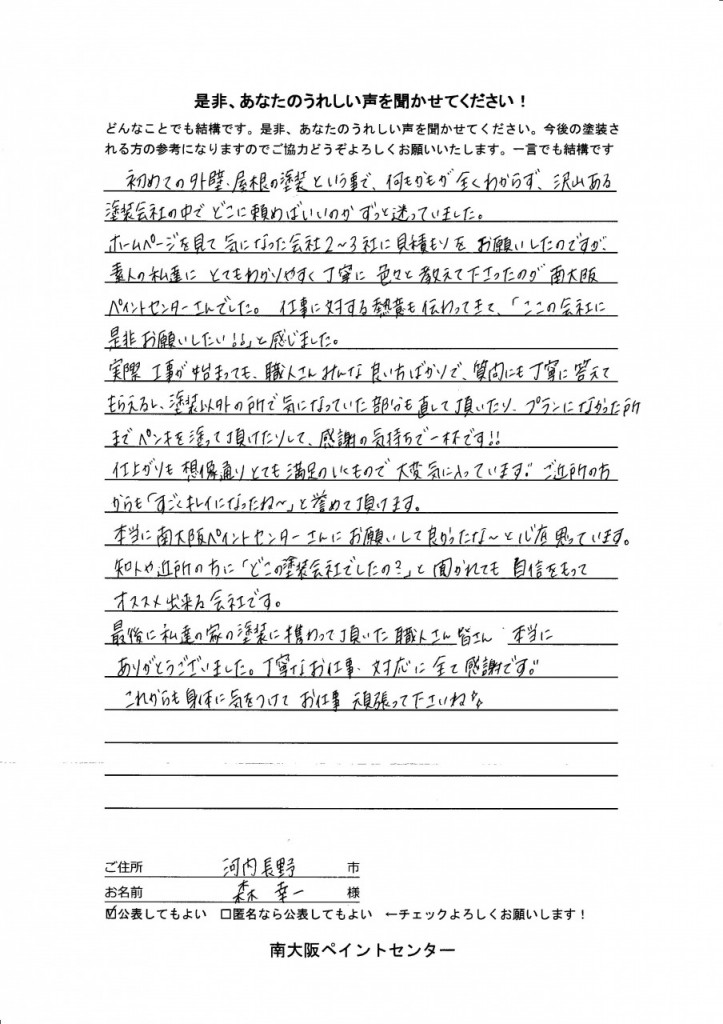 是非、あなたのうれしい声を聞かせてください！
どんなことでも結構です。是非、あなたのうれしい声を聞かせてください。今後の塗装さ
れる方の参考になりますのでご協力どうぞよろしくお願いいたします。一言でも結構です
初めての外壁、屋根の塗装という事で、何もかもが全くわからず、沢山ある
塗装会社の中でどこに頼めばいいのかずっと迷っていました。
ホームページを見て気になった会社2～3社に見積もりをお願いしたのですが、
素人の私達にとてもわかりやすく丁寧に色々と教えて下さったのが南大阪
ペイントセンターさんでした。仕事に対する熱意も伝わってきて、「ここの会社に
是非お願いしたい!!」と感じました。
実際工事が始まっても、職人さんみんな良い方ばかりで、質問にも丁寧に答えて
もらえるし、塗装以外の所で気になっていた部分も直して頂いたり、プランになかった所
までペンキを塗って頂けたりして、感謝の気持ちで一杯です!!
仕上がりも想像通りとても満足のいくもので大変気に入っています。ご近所の方
からも「すごくキレイになったね～」と誉めて頂けます。
本当に南大阪ペイントセンターさんにお願いして良かったな～と心底思っています。
知人や近所の方に「どこの塗装会社でしたの？」と聞かれても自信をもって
オススメ出来る会社です。
最後に私達の家の塗装に携わって頂いた職人さん皆さん 本当に
ありがとうございました。丁寧なお仕事、対応に全て感謝です。
これからも身体に気をつけてお仕事頑張って下さいね
ご住所 河内長野 市
お名前 森 幸一 様
☑公表してもよい □匿名なら公表してもよい ←チェックよろしくお願いします！
南大阪ペイントセンター